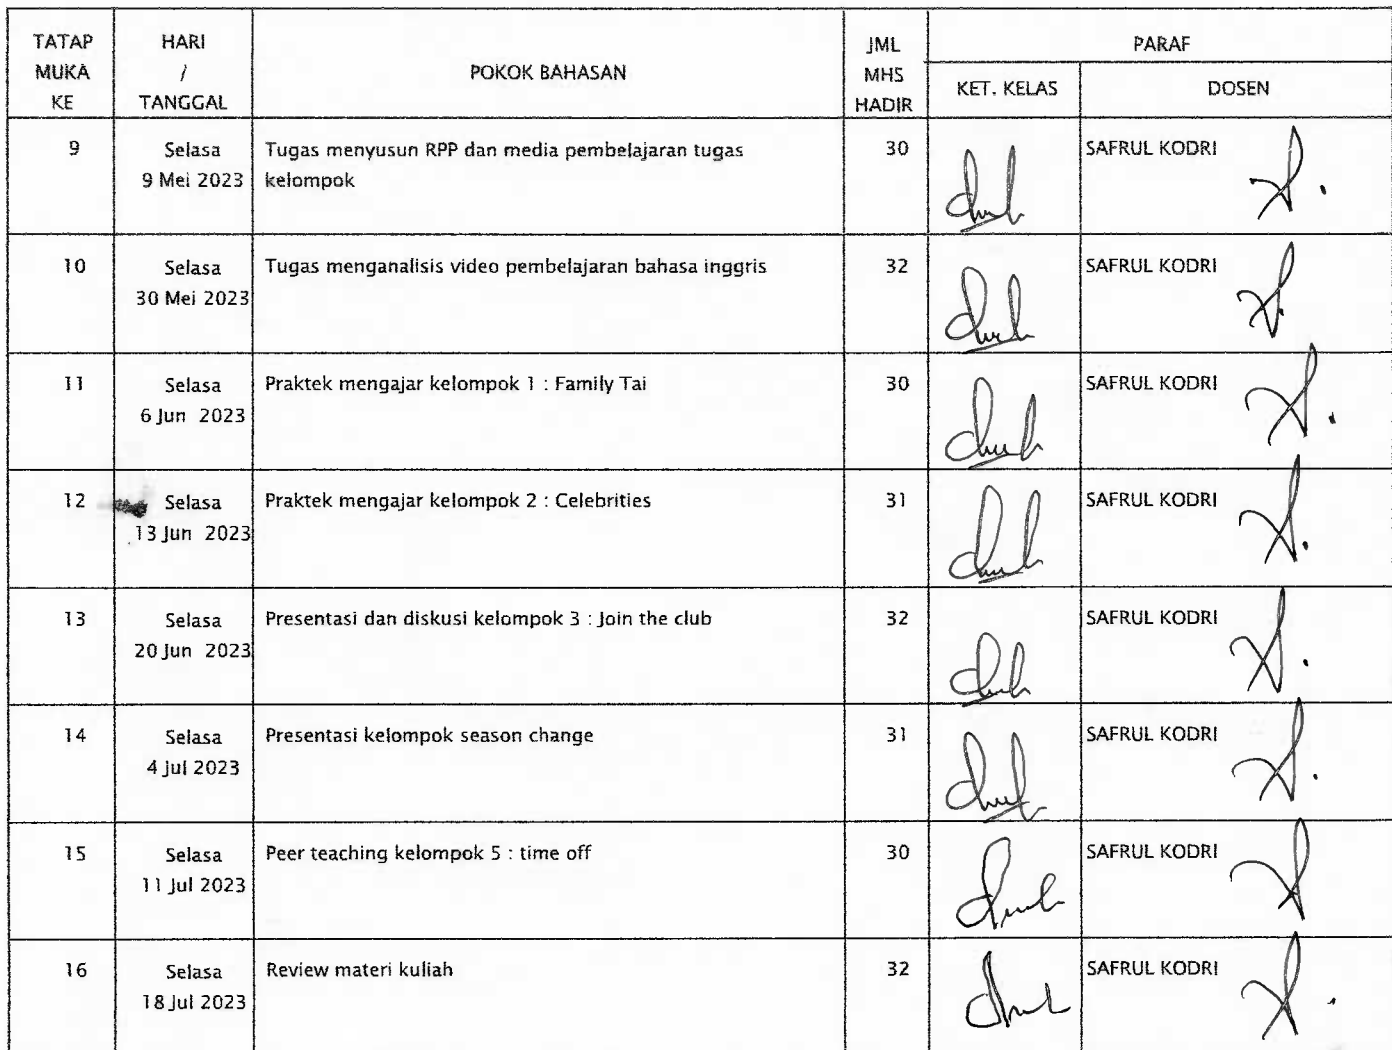 TATAP MUKA KE
HARI / TANGGAL
POKOK BAHASAN
JML MHS HADIR
PARAF
KET. KELAS
DOSEN
9
Selasa
9 Mei 2023
Tugas menyusun RPP dan media pembelajaran tugas
kelompok
30
SAFRUL KODRI
10
Selasa
30 Mei 2023
Tugas menganalisis video pembelajaran bahasa inggris
32
SAFRUL KODRI
11
Selasa
6 Jun 2023
Praktek mengajar kelompok 1 : Family Tai
30
SAFRUL KODRI
12
Selasa
13 Jun 2023
Praktek mengajar kelompok 2 : Celebrities
31
SAFRUL KODRI
13
Selasa
20 Jun 2023
Presentasi dan diskusi kelompok 3 : Join the club
32
SAFRUL KODRI
14
Selasa
4 Jul 2023
Presentasi kelompok season change
31
SAFRUL KODRI
15
Selasa
11 Jul 2023
Peer teaching kelompok 5 : time off
30
SAFRUL KODRI
16
Selasa
18 Jul 2023
Review materi kuliah
32
SAFRUL KODRI